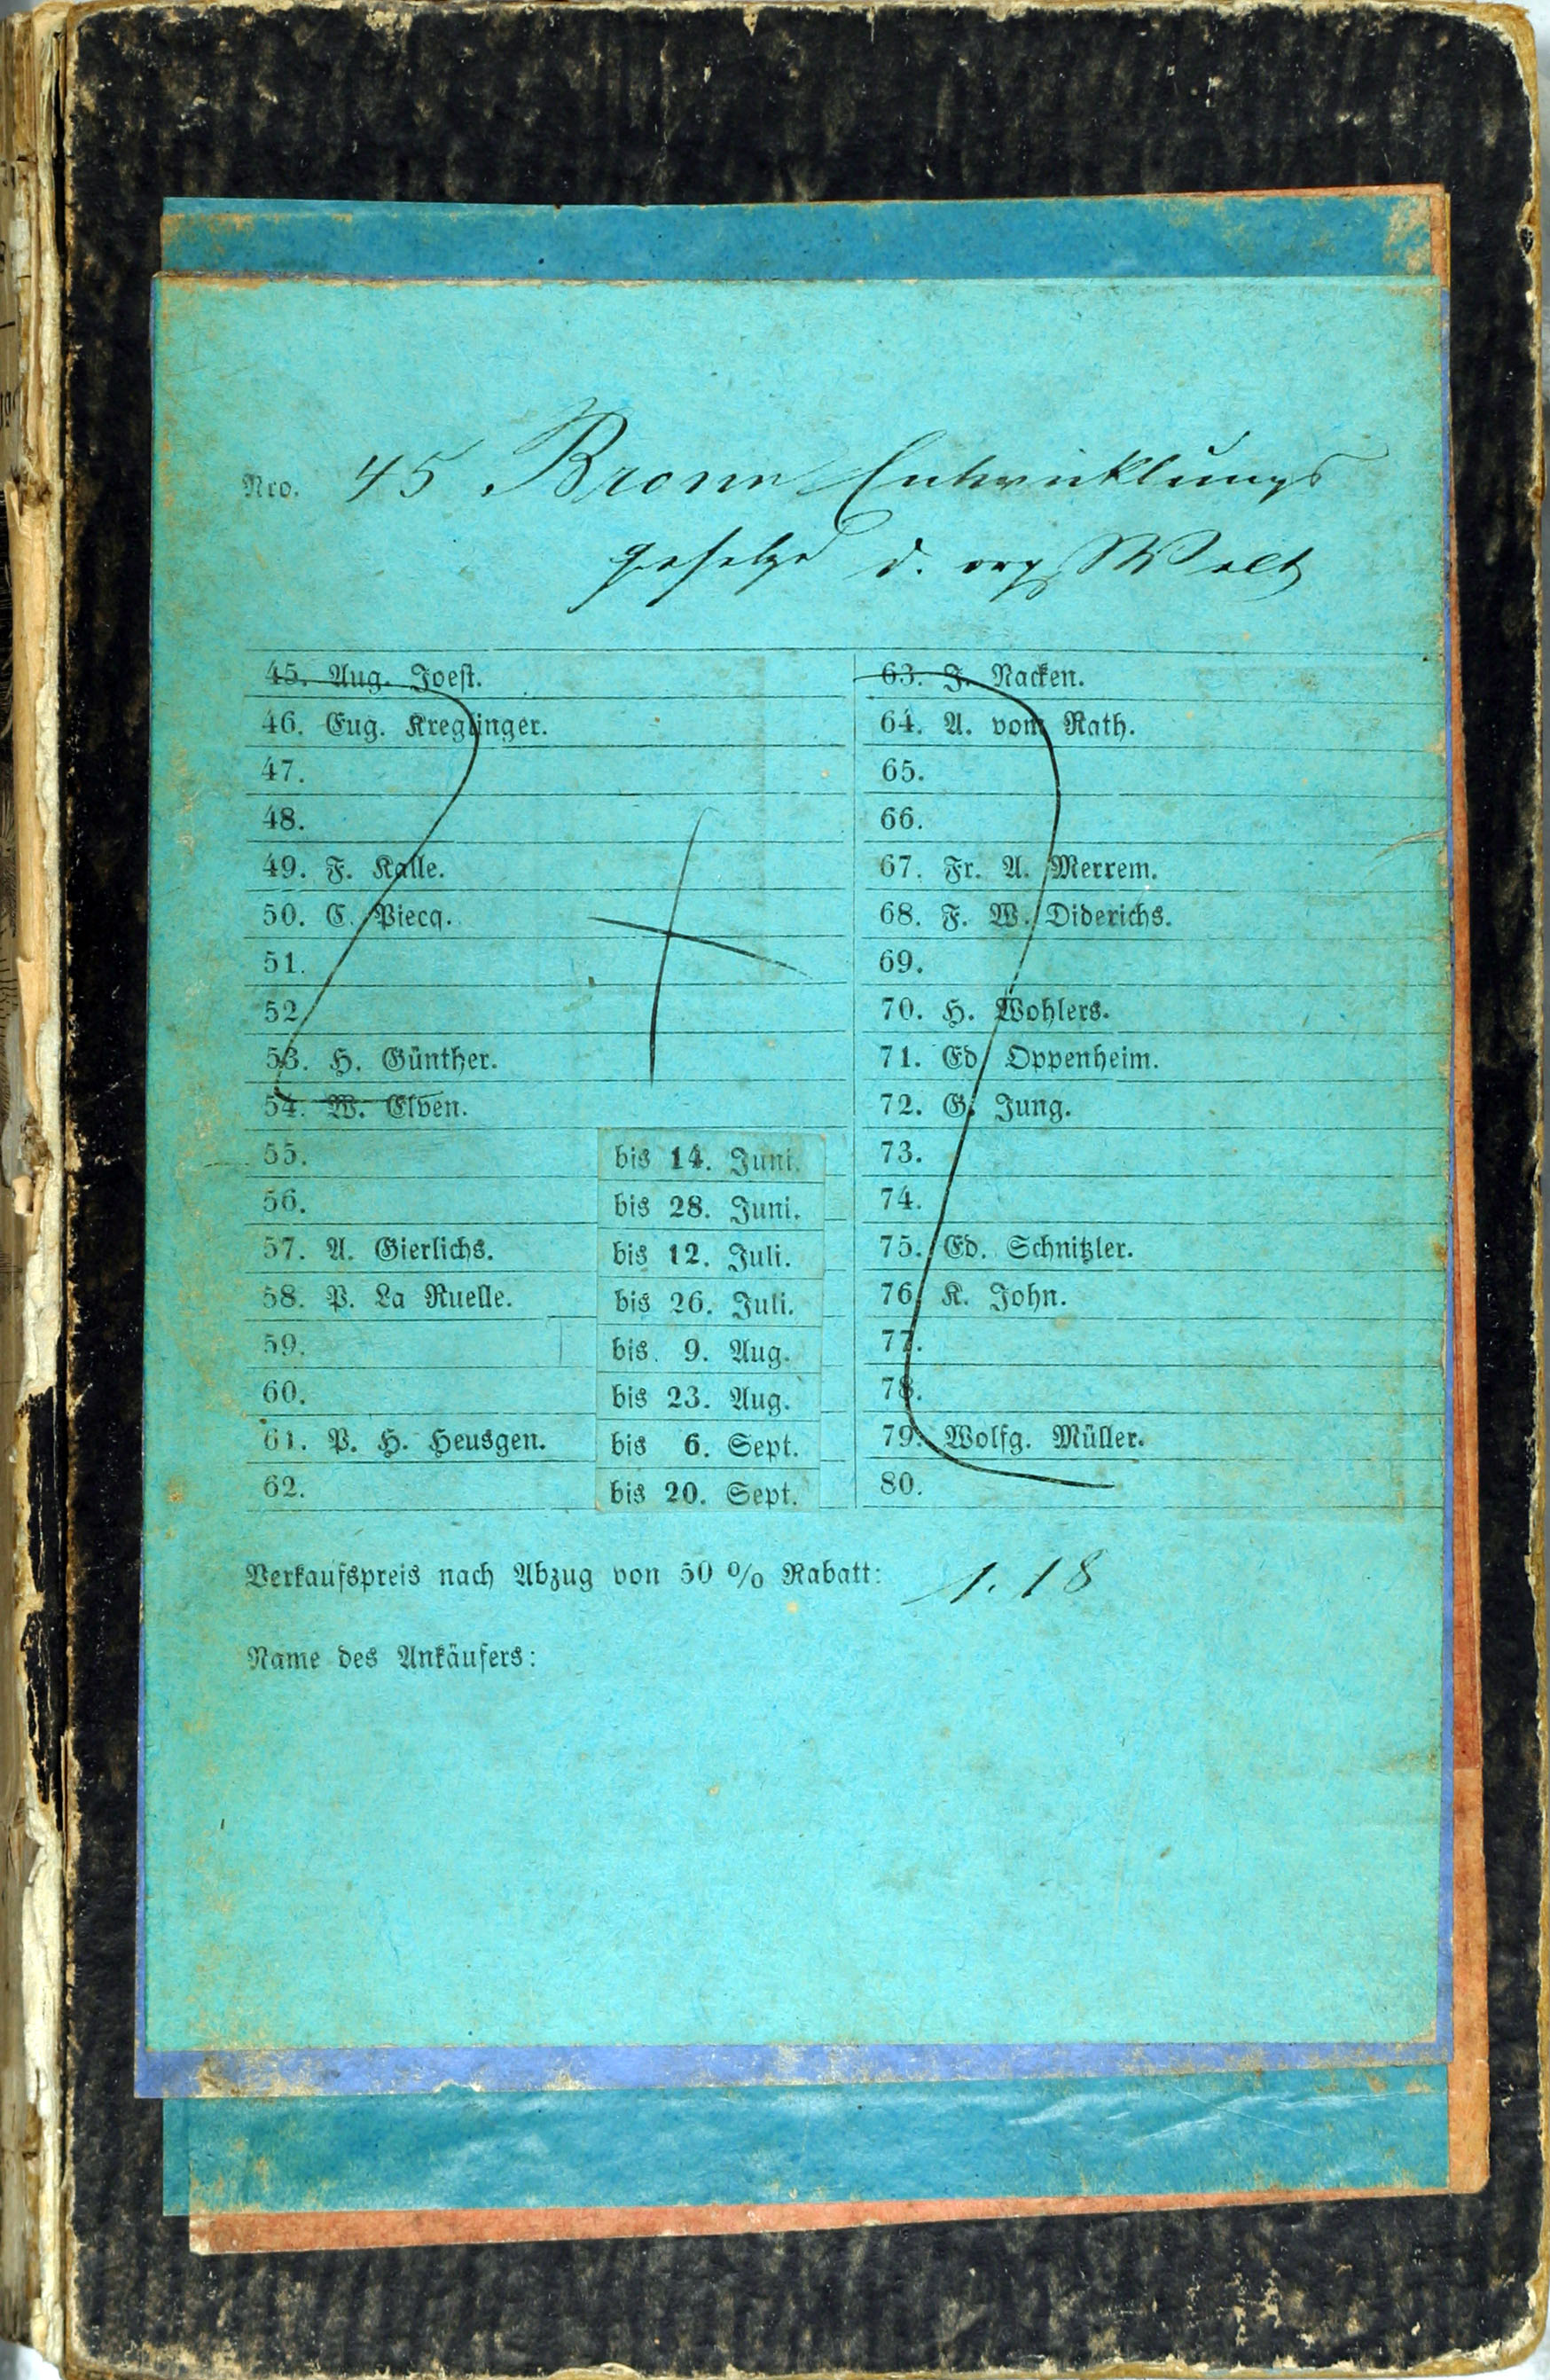 Nro. 45 Bronn Entwicklungs
gesetze d. org. Welt
45. Aug. Joest.
46. Eug. Kreglinger.
47.
48.
49. F. Kalle.
50. C. Piecq.
51.
52.
53. H. Günther.
54. W. Elven.
55.
56.
57. A. Gierlichs.
58. P. La Ruelle.
59.
60.
61. P. H. Heusgen.
62.
bis 14. Juni.
bis 28. Juni.
bis 12. Juli.
bis 26. Juli.
bis 9. Aug.
bis 23. Aug.
bis 6. Sept.
bis 20. Sept.
63. J. Nacken.
64. A. vom Rath.
65.
66.
67. Fr. A. Merrem.
68. F. W. Diderichs.
69.
70. H. Wohlers.
71. Ed. Oppenheim.
72. G. Jung.
73.
74.
75. Ed. Schnitzler.
76. K. John.
77.
78.
79. Wolfg. Müller.
80.
Verkaufspreis nach Abzug von 50 % Rabatt: 1. 18
Name des Ankäufers: